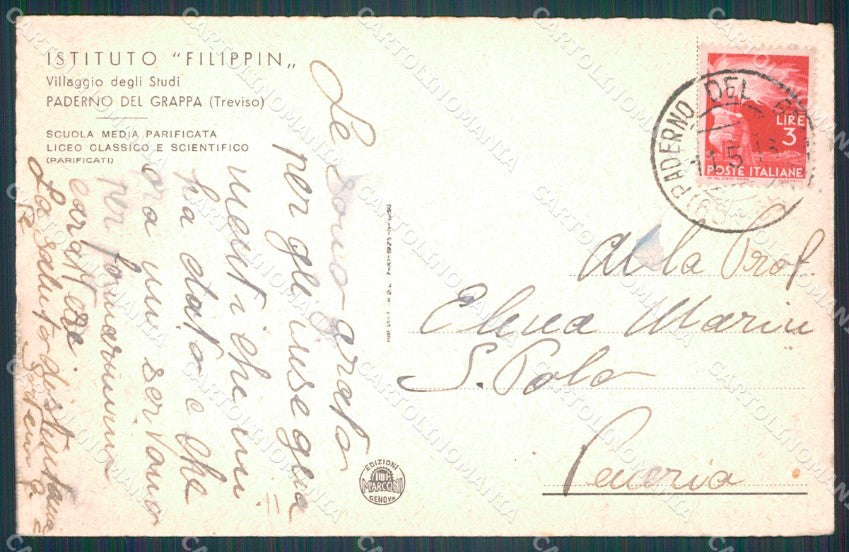 ISTITUTO "FILIPPIN„
Villaggio degli Studi
PADERNO DEL GRAPPA (Treviso)
SCUOLA MEDIA PARIFICATA
LICEO CLASSICO E SCIENTIFICO
(PARIFICATI)
Le sono grata
per gli insegna
menti che mi
ha dato e che
ora mi servono
per formarmi un
carattere.
La saluto distintamente
PADERNO DEL
11 5
LIRE
3
POSTE ITALIANE
Alla Prof.
Elena Marin
S. Polo
Venezia
EDIZIONI
MARCONI
GENOVA